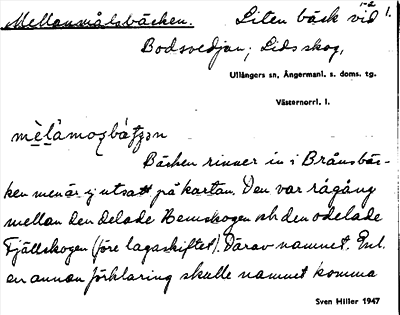 Mellanmålsbäcken. Liten bäck vid 1.
Bodsvedjan; Lidsskog,
Ullångers sn, Ångermanl. s. doms. tg.
Västernorrl. l.
Bäcken rinner in i Brånsbäc-
ken men är ej utsatt på kartan. Den var rågång
mellan den delade Hemskogen och den odelade
Fjällskogen (före lagaskiftet). Därav namnet. Enl.
en annan förklaring skulle namnet komma
Sven Hiller 1947